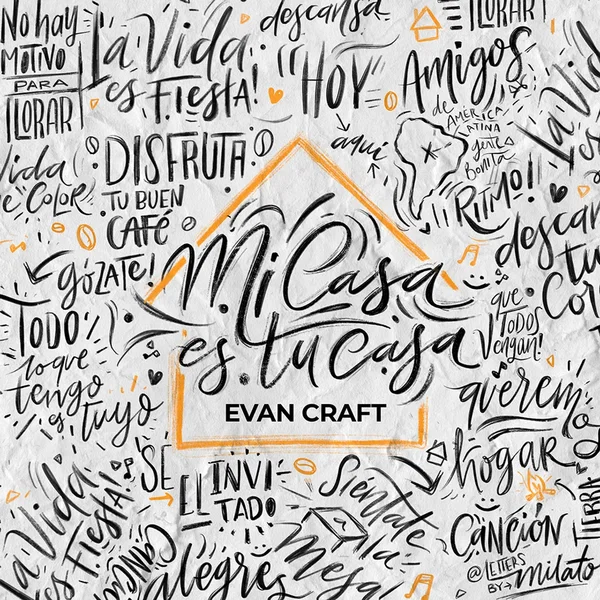 No hay
MOTIVO
PARA
LLORAR
La Vida
es FIESTA!
descansa
"HOY"
aquí
Amigos
de AMÉRICA
LATINA
gente
Bonita
LLORAR
La Vid
Vida
COLOR
DISFRUTA
TU BUEN
CAFÉ
¡RITMO!
descan
tu
Cor
gózate!
TODO
lo que
tengo
es tuyo
Mi Casa
es tu casa
EVAN CRAFT
que
TODOS
Vengan!
querem
hogar
La Vida
es Fiesta!
SE
EL INVI
TADO
Siéntate
a la
mesa
alegres
CANCIÓN
TIERRA
@LETTERS
BY→milato